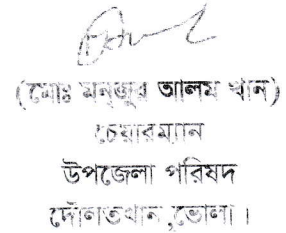 (মোঃ মন্জুর আলম খান)
চেয়ারম্যান
উপজেলা পরিষদ
দৌলতখান, ভোলা।